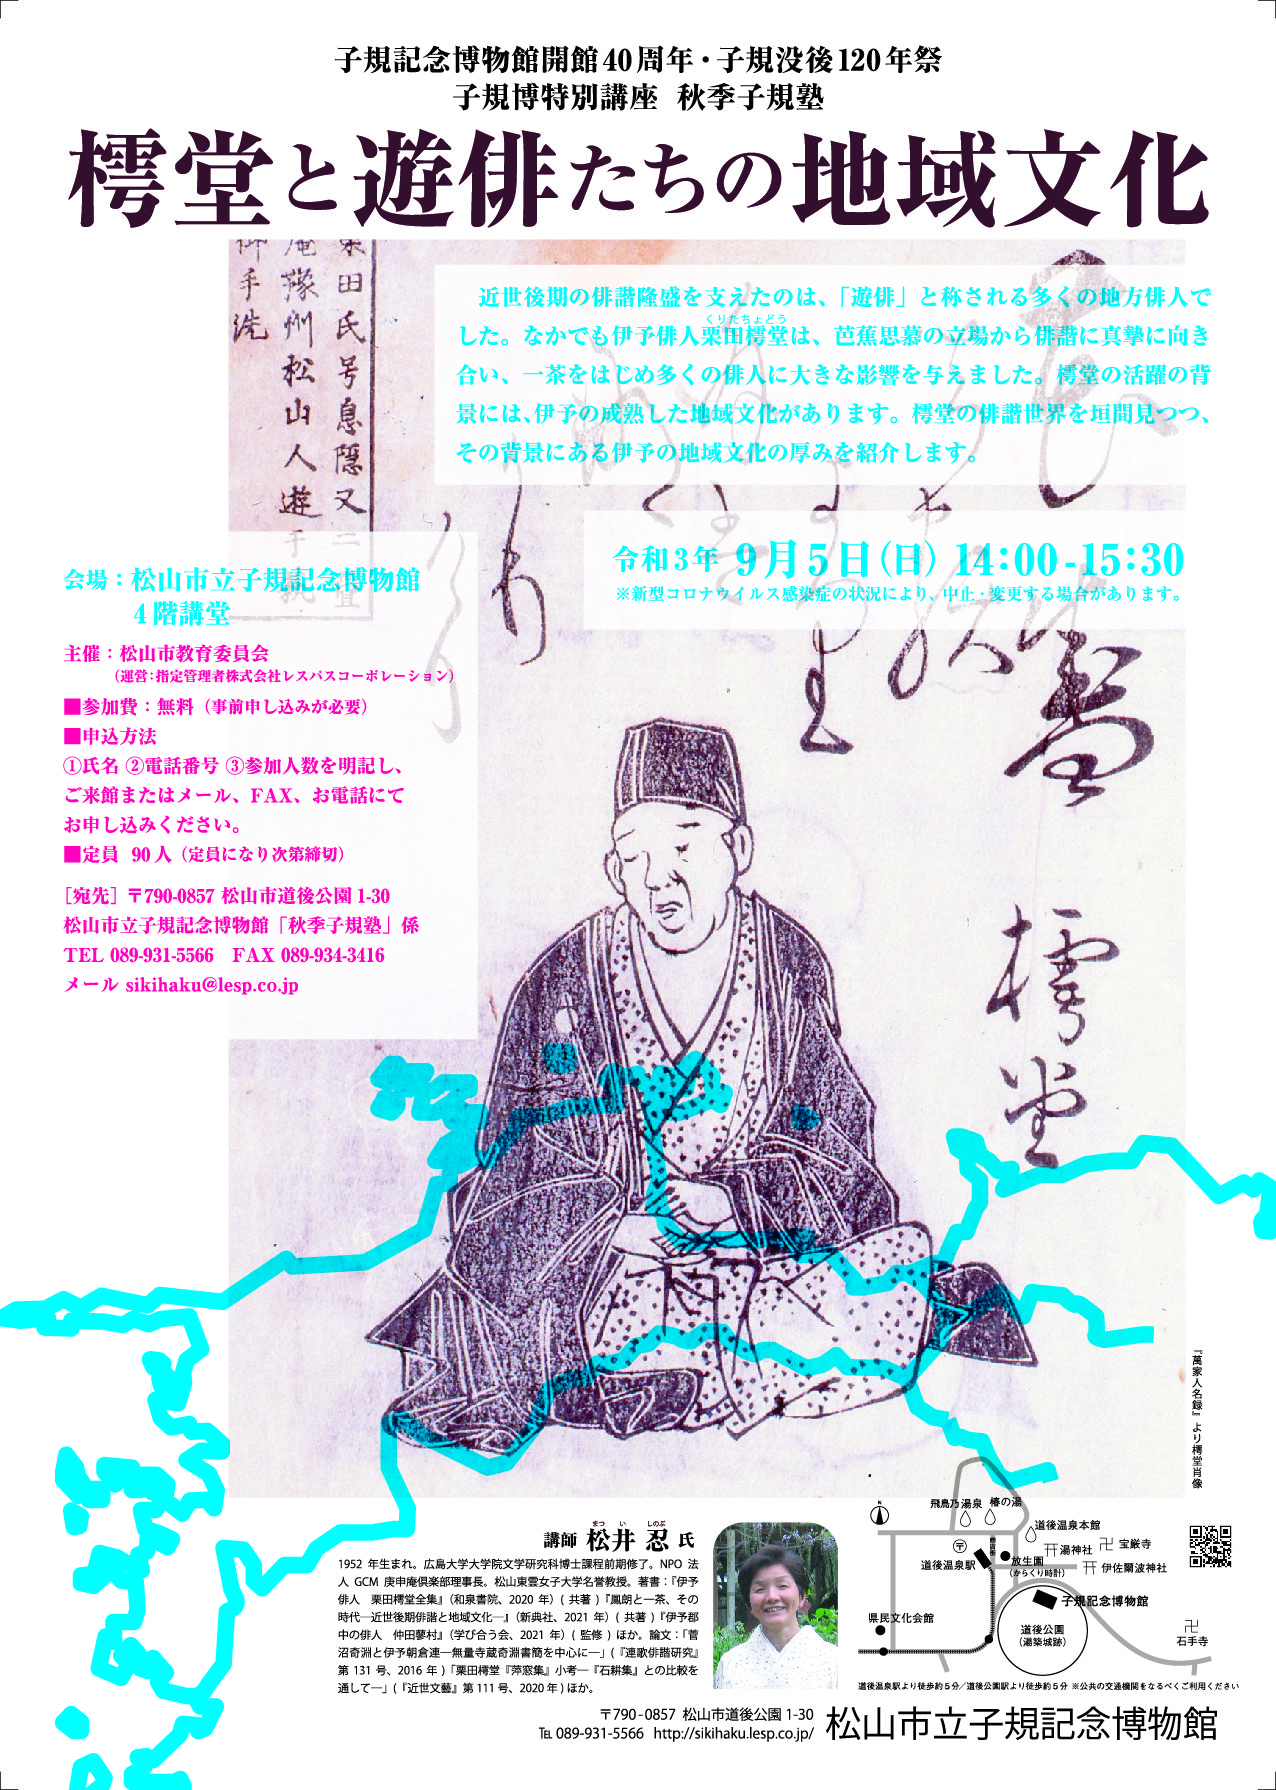 子規記念博物館開館40周年・子規没後120年祭
子規博特別講座 秋季子規塾
樗堂と遊俳たちの地域文化
近世後期の俳諧隆盛を支えたのは、「遊俳」と称される多くの地方俳人で
した。なかでも伊予俳人栗田樗堂は、芭蕉思慕の立場から俳諧に真摯に向き
くりたちょどう
合い、一茶をはじめ多くの俳人に大きな影響を与えました。樗堂の活躍の背
景には、伊予の成熟した地域文化があります。樗堂の俳諧世界を垣間見つつ、
その背景にある伊予の地域文化の厚みを紹介します。
令和3年 9月5日(日) 14:00-15:30
※新型コロナウイルス感染症の状況により、中止・変更する場合があります。
田氏号息隠又二
庵豫州松山人遊于
御手洗
樗堂
会場：松山市立子規記念博物館
4階講堂
主催：松山市教育委員会
（運営：指定管理者株式会社レスパスコーポレーション）
■参加費：無料（事前申し込みが必要）
■申込方法
①氏名 ②電話番号 ③参加人数を明記し、
ご来館またはメール、FAX、お電話にて
お申し込みください。
■定員 90人（定員になり次第締切）
［宛先］〒790-0857 松山市道後公園1-30
松山市立子規記念博物館「秋季子規塾」係
TEL 089-931-5566 FAX 089-934-3416
メール sikihaku@lesp.co.jp
『萬家人名録』より樗堂肖像
まつ い しのぶ
講師 松井 忍 氏
1952 年生まれ。広島大学大学院文学研究科博士課程前期修了。NPO 法
人 GCM 庚申庵倶楽部理事長。松山東雲女子大学名誉教授。著書：『伊予
俳人 栗田樗堂全集』（和泉書院、2020 年）( 共著 )『鳳朗と一茶、その
時代―近世後期俳諧と地域文化―』（新典社、2021 年）( 共著 )『伊予郡
中の俳人 仲田蓼村』（学び合う会、2021 年）( 監修 ) ほか。論文：「菅
沼奇淵と伊予朝倉連―無量寺蔵奇淵書簡を中心に―」(『連歌俳諧研究』
第 131 号、2016 年 )「栗田樗堂『萍窓集』小考―『石耕集』との比較を
通して―」(『近世文藝』第 111 号、2020 年 ) ほか。
N
飛鳥乃湯泉
椿の湯
道後温泉本館
商店街
湯神社
宝厳寺
道後温泉駅
放生園
（からくり時計）
伊佐爾波神社
子規記念博物館
県民文化会館
道後公園
（湯築城跡）
石手寺
道後温泉駅より徒歩約5分／道後公園駅より徒歩約5分 ※公共の交通機関をなるべくご利用ください
〒790-0857 松山市道後公園 1-30
℡ 089-931-5566 http://sikihaku.lesp.co.jp/
松山市立子規記念博物館